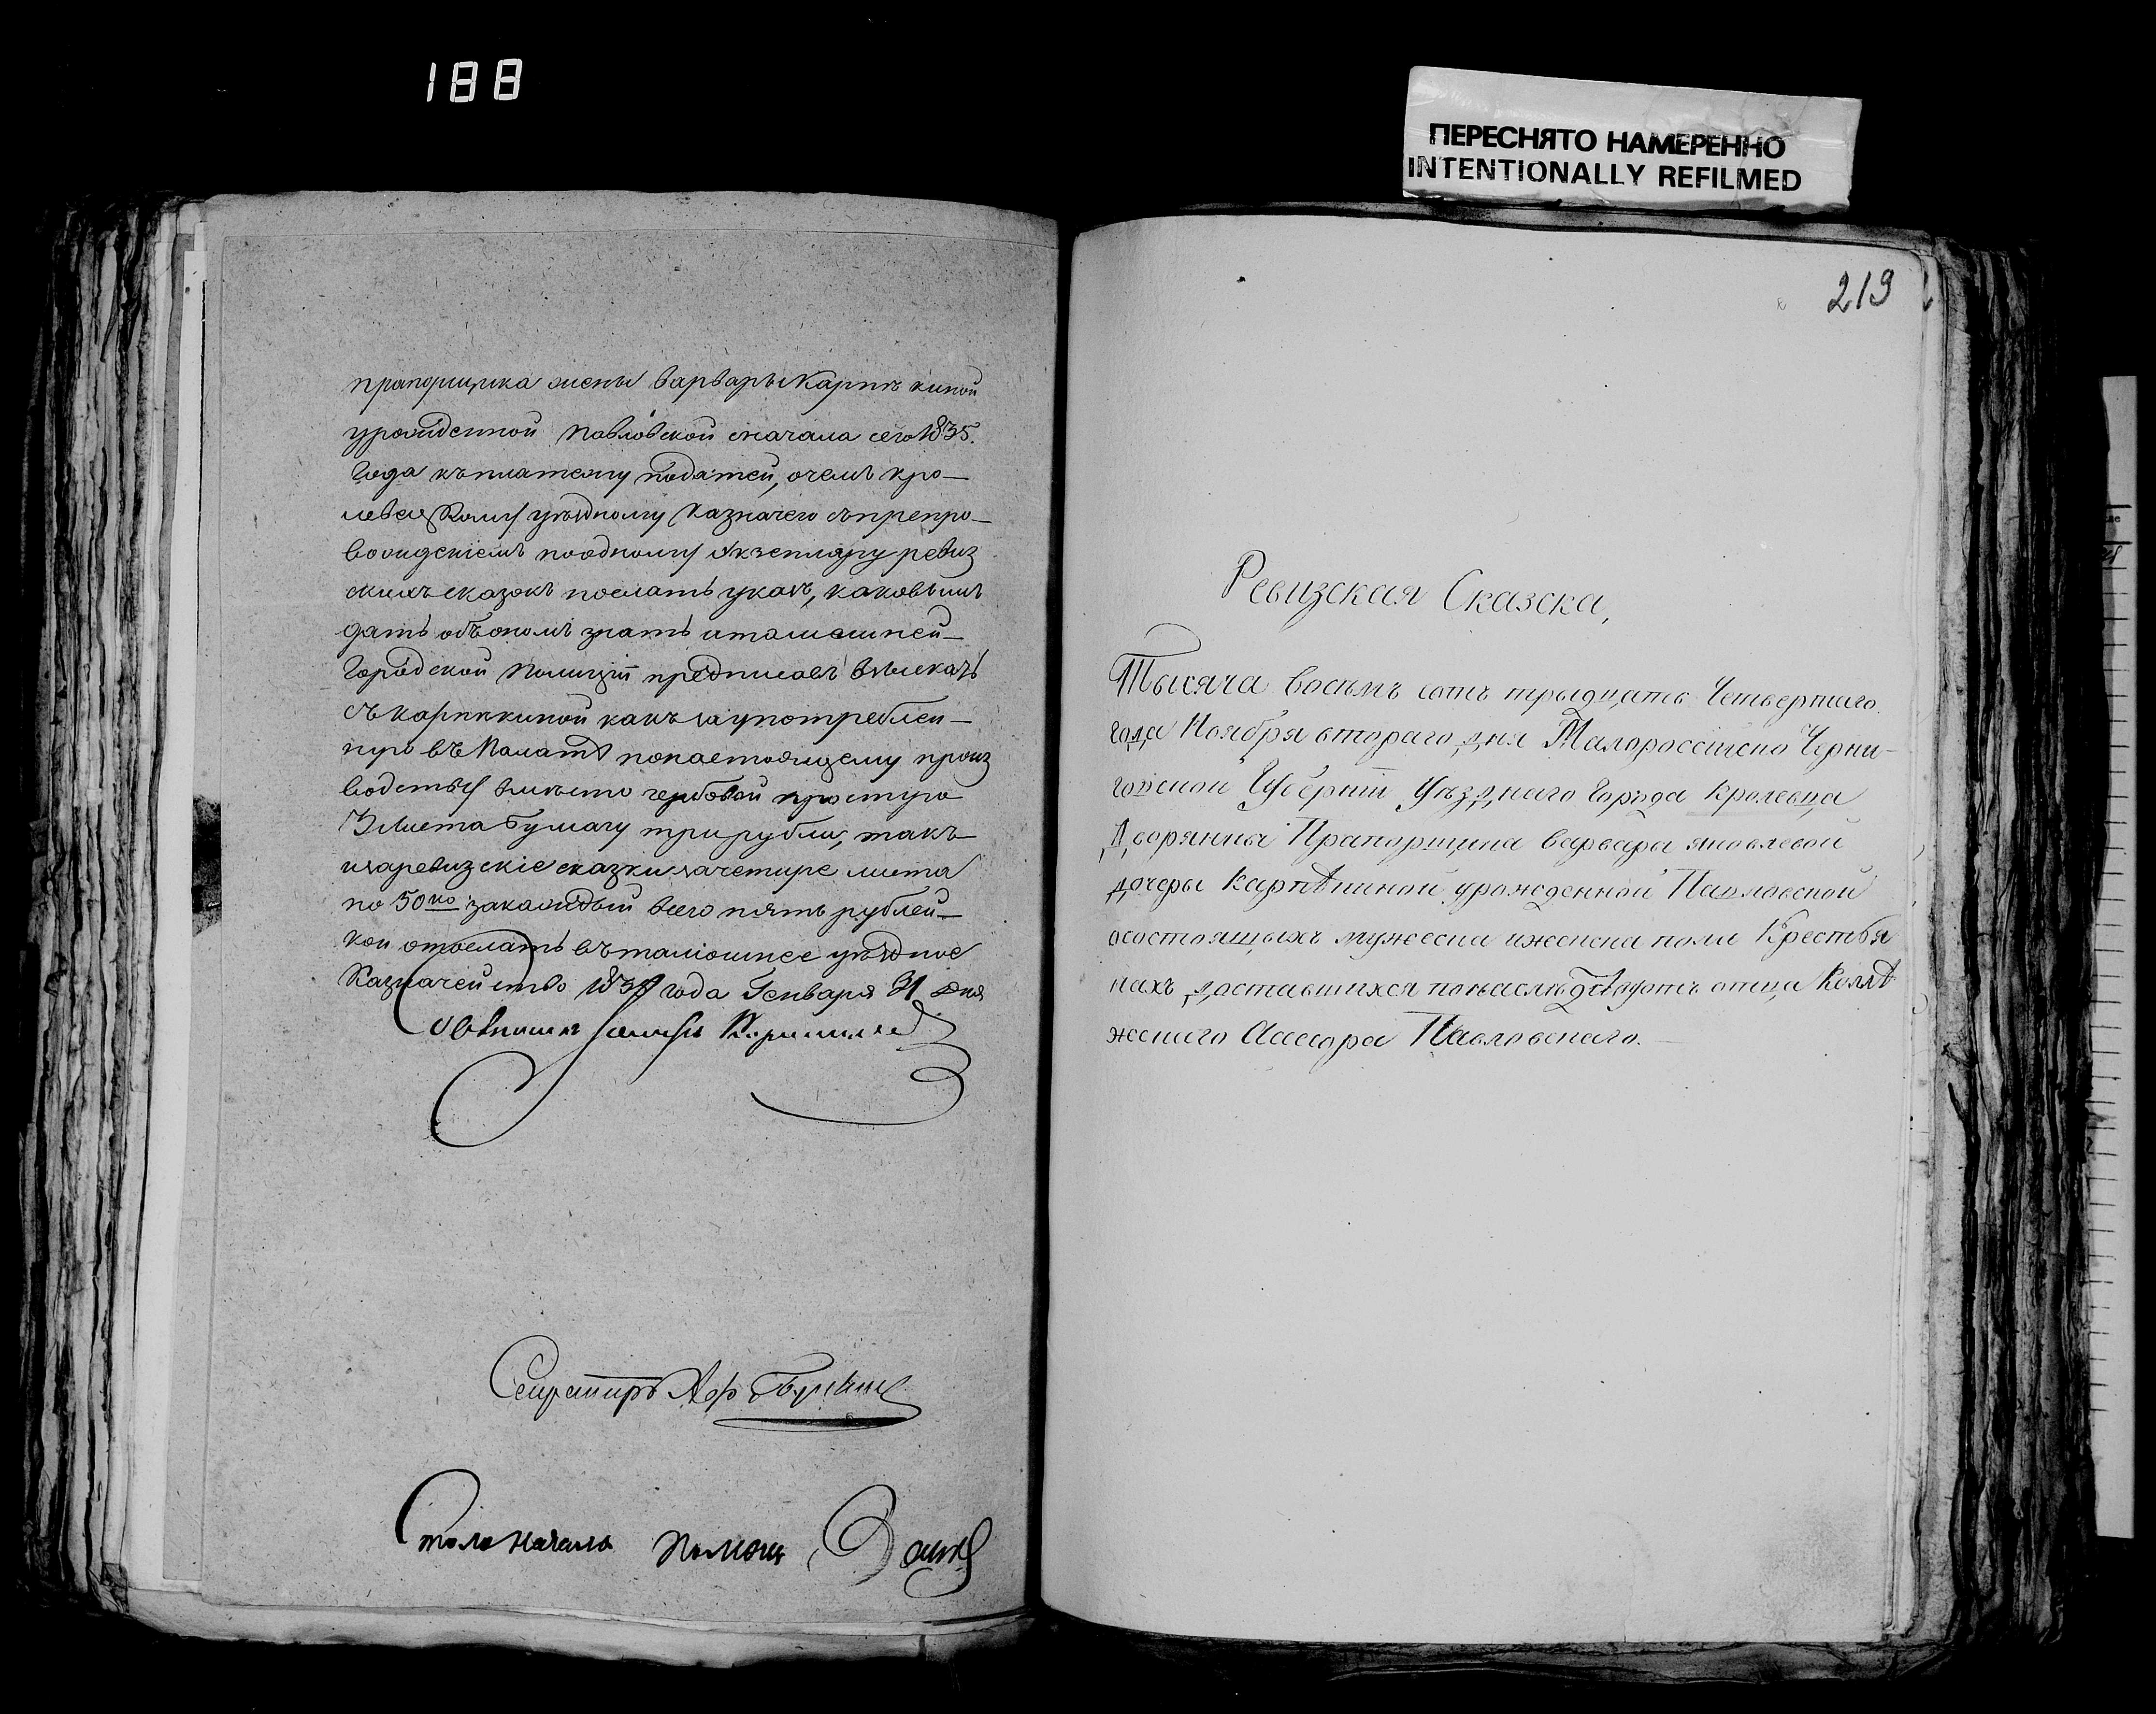 188
ПЕРЕСНЯТО НАМЕРЕННО
INTENTIONALLY REFILMED
219
прапорщика жены варвары Карпѣкиной
урожденной Павловской сначала сего 1835.
года къ платежу податей, о чемъ кро—
левецкому уѣздному Казначею съ препро—
вожденіемъ по одному экземпляру ревиз
скихъ сказокъ послать указъ, каковымъ
дать объ ономъ знать и тамошней—
Городской Полиціи предписавъ взыскать
съ карпѣкиной какъ за употреблен—
ную въ Палатѣ по настоящему произ
водству вместо гербовой простую
листа бумагу три рубли, такъ
и за ревизскіе сказки за четыре листа
по 50 ко за каждый всего пять рублей—
кои отослать въ тамошнее уѣздное
Казначейство 1835 года Генваря 31 дня
Совѣтникъ
Секретарь
Столоначаль Помощ
Ревизская Сказска,
Тысяча восѣмъ сотъ трыдцать Четвертаго
года Ноября втораго дня Малороссійско Черни-
говской Губерніи Уѣзднаго Города Кролевца
Дворянны Прапорщика варвары яковлевой
дочеры Карпѣкиной урожденной Павловской
осостоящыхъ мужеска иженска пола Крестья
нахъ доставшихся понаслѣдству отъ отца Коллѣ
жскаго Ассесора Павловскаго.